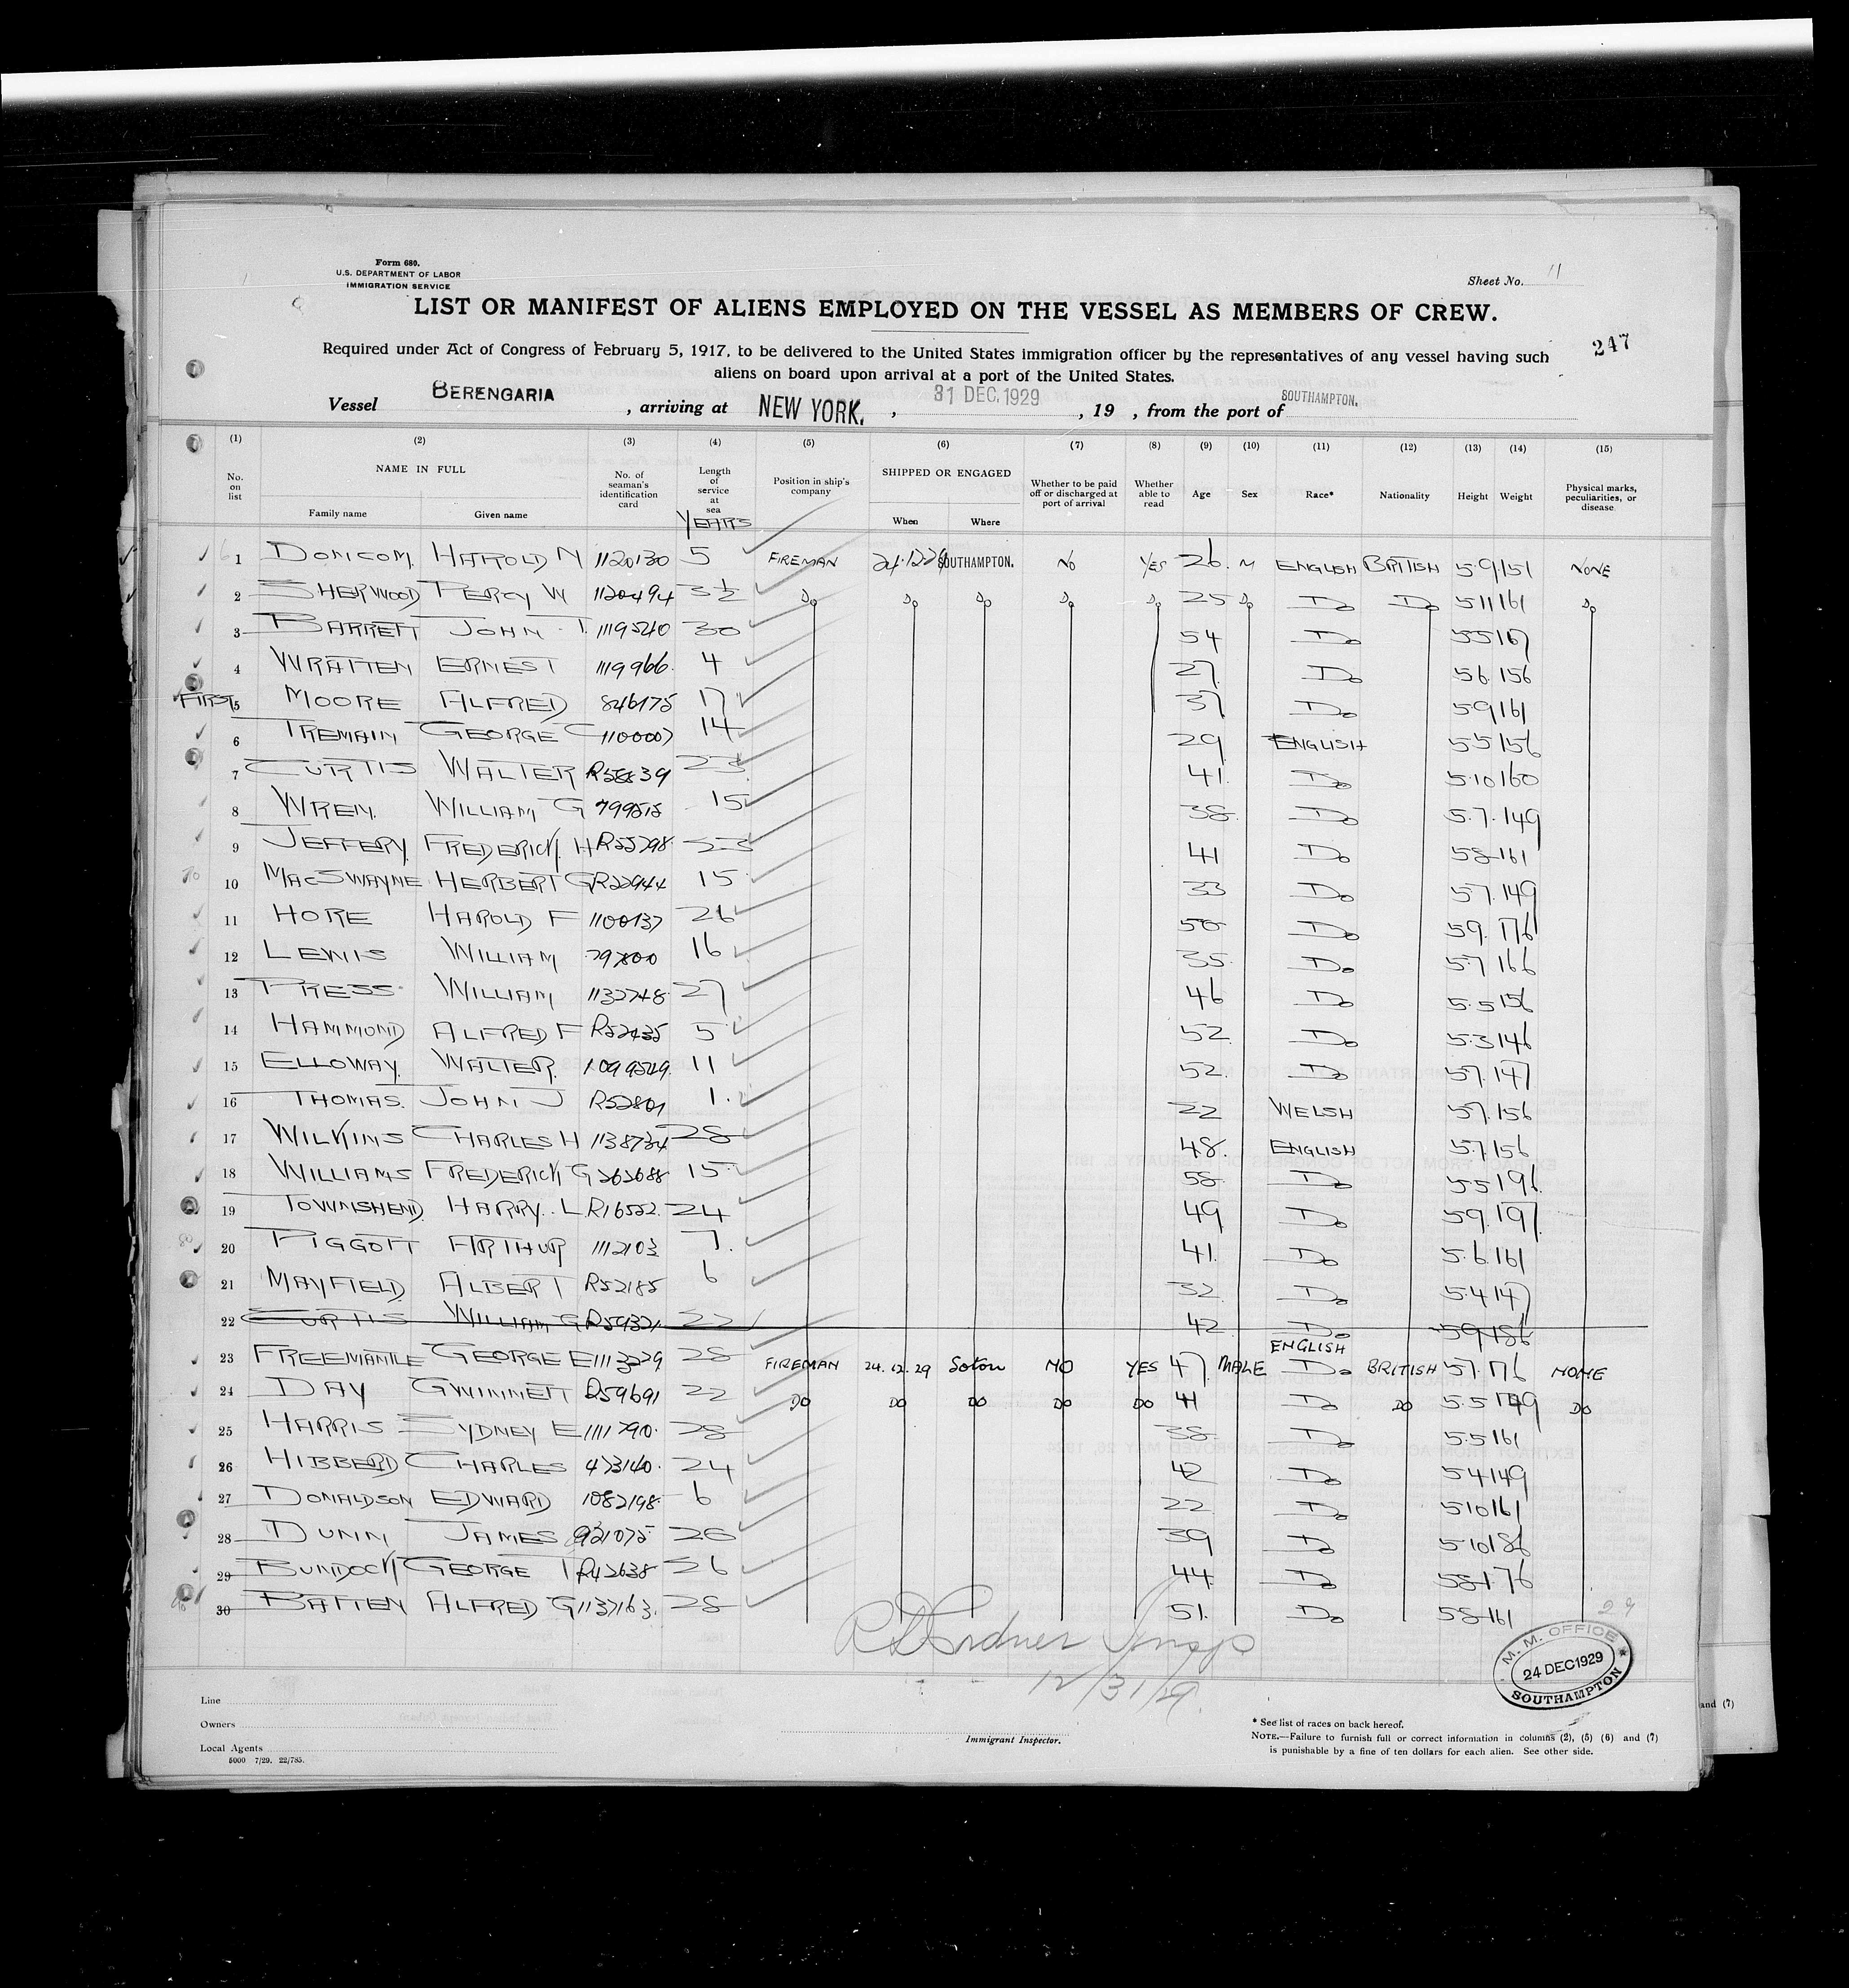 Form 680.
U.S. DEPARTMENT OF LABOR
IMMIGRATION SERVICE
Sheet No. 11
LIST OR MANIFEST OF ALIENS EMPLOYED ON THE VESSEL AS MEMBERS OF CREW.
247
Required under Act of Congress of February 5, 1917, to be delivered to the United States immigration officer by the representatives of any vessel having such
aliens on board upon arrival at a port of the United States.
Vessel BERENGARIA, arriving at NEW YORK, 31 DEC. 1929, 19 , from the port of SOUTHAMPTON.
(1) (2) (3) (4) (5) (6) (7) (8) (9) (10) (11) (12) (13) (14) (15)
No. on list NAME IN FULL Family name Given name No. of seaman's identification card Length of service at sea YEARS Position in ship's company SHIPPED OR ENGAGED When Where Whether to be paid off or discharged at port of arrival Whether able to read Age Sex Race* Nationality Height Weight Physical marks, peculiarities, or disease
1 HAROLD N 1120130 5 FIREMAN 24.12.29 SOUTHAMPTON. NO YES 26 M ENGLISH BRITISH 5.9 151 NONE
2 SHERWOOD PERCY W 1120494 3½ Do Do Do Do Do 25 Do Do Do 5 11 161 Do
3 BARRETT JOHN T. 1119540 30 54 Do 5 5 167
4 WRATTEN ERNEST 1119966 4 27 Do 5 6 156
FIRST 5 MOORE ALFRED 846175 17 37 Do 5 9 161
6 TREMAIN GEORGE C 1100007 14 29 ENGLISH 5 5 156
7 CURTIS WALTER R58839 23 41 Do 5.10 160
8 WREN WILLIAM G 799515 15 38 Do 5.7.149
9 JEFFERY FREDERICK H 41 Do 5 8 161
10 MACSWAYNE HERBERT G R22944 15 33 Do 5 7.149
11 HORE HAROLD F 1100137 26 50 Do 5 9.176
12 LEWIS WILLIAM 16 35 Do 5.7 166
13 PRESS WILLIAM 1132748 27 46 Do 5.5 156
14 HAMMOND ALFRED F R52435 5 52 Do 5.3 146
15 ELLOWAY WALTER 1099549 11 52 Do 5 7.147
16 THOMAS JOHN J 1 22 WELSH 5 7.156
17 WILKINS CHARLES H 1138734 28 48 ENGLISH 5.7 156
18 WILLIAMS FREDERICK G 262688 15 58 Do 5 5 196
19 TOWNSHEND HARRY L R16522 24 49 Do 5 9.197
20 PIGGOTT ARTHUR 1112103 7 41 Do 5.6.161
21 MAYFIELD ALBERT R52185 6 32 Do 5.4 147
22 CURTIS WILLIAM G R59321 22 42 Do 5 9 186
23 FREEMANTLE GEORGE E 1113229 28 FIREMAN 24.12.29 Soton NO YES 47 MALE ENGLISH Do BRITISH 5 7.176 NONE
24 DAY GWINNETT R59691 22 DO DO DO DO DO 41 Do DO 5.5 149 DO
25 HARRIS SYDNEY E 1111790 28 38 Do 5 5 161
26 HIBBERD CHARLES 473140 24 42 Do 5 4 149
27 DONALDSON EDWARD 1082198 6 22 Do 5 10 161
28 DUNN JAMES 921075 26 39 Do 5 10 186
29 BUNDOCK GEORGE T R42638 26 44 Do 5 8 176
30 BATTEN ALFRED G 1137163 28 51 Do 5 8 161
29
12/31/29
M. M. OFFICE
24 DEC 1929
SOUTHAMPTON
Line
Owners
Local Agents
5000 7/29. 22/785.
Immigrant Inspector.
* See list of races on back hereof.
NOTE.—Failure to furnish full or correct information in columns (2), (5) (6) and (7)
is punishable by a fine of ten dollars for each alien. See other side.
and (7)